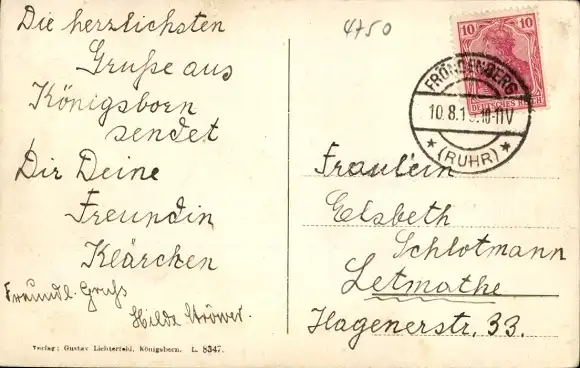 Die herzlichsten
Grüße aus
Königsborn
sendet
Dir Deine
Freundin
Klärchen
Freundl. Gruß
Hilde
Verlag: Gustav Lichterfeld, Königsborn. L. 8347.
4750
10 10
DEUTSCHES REICH
FRÖNDENBERG
10.8.1 10-11V
* (RUHR) *
Fraulein
Elsbeth
Schlotmann
Letmathe
Hagenerstr. 33.